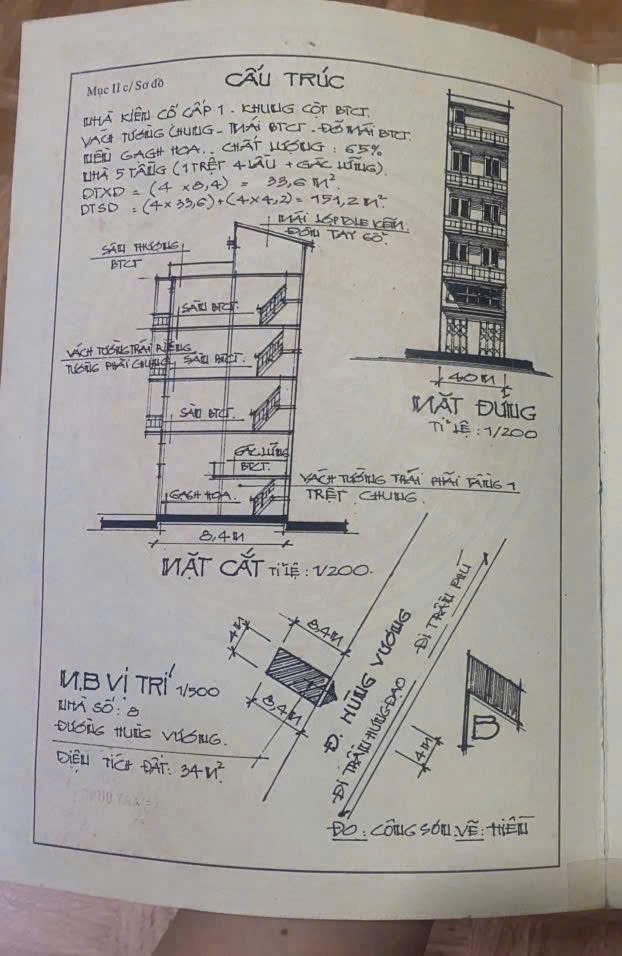 Mục II c/ Sơ đồ
CẤU TRÚC
NHÀ KIÊN CỐ CẤP 1 - KHUNG CỘT BTCT.
VÁCH TƯỜNG CHUNG - MÁI BTCT - ĐỠ MÁI BTCT.
NỀN GẠCH HOA.. CHẤT LƯỢNG : 65%
NHÀ 5 TẦNG (1 TRỆT 4 LẦU + GÁC LỬNG).
DTXD = (4 x 8,4) = 33,6 M².
DTSD = (4 x 33,6) + (4 x 4,2) = 151,2 M².
MÁI LỢP TOLE KẼM.
ĐÒN TAY GỖ.
SÂN THƯỢNG
BTCT
SÀN BTCT.
VÁCH TƯỜNG TRÁI RIÊNG
TƯỜNG PHẢI CHUNG
SÀN BTCT.
SÀN BTCT.
GÁC LỬNG
BTCT.
GẠCH HOA.
VÁCH TƯỜNG TRÁI PHẢI TẦNG 1
TRỆT CHUNG.
8,4M
MẶT CẮT TỈ LỆ : 1/200.
40M
MẶT ĐỨNG
TỈ LỆ : 1/200
4M
8,4M
8,4M
M.B VỊ TRÍ 1/500
NHÀ SỐ : 8
ĐƯỜNG HÙNG VƯƠNG.
DIỆN TÍCH ĐẤT : 34 M².
Đ. HÙNG VƯƠNG
ĐI TRẦN PHÚ
ĐI TRẦN HƯNG ĐẠO
4M
B
ĐO : CÔNG SƠN. VẼ : HIỀN